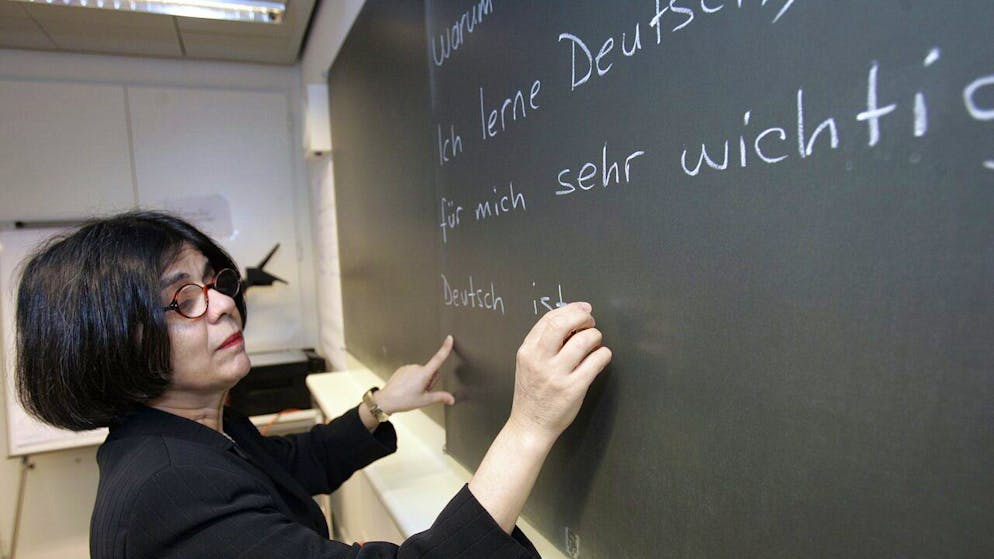 warum
Ich lerne Deutsch,
für mich sehr wichtig
Deutsch ist